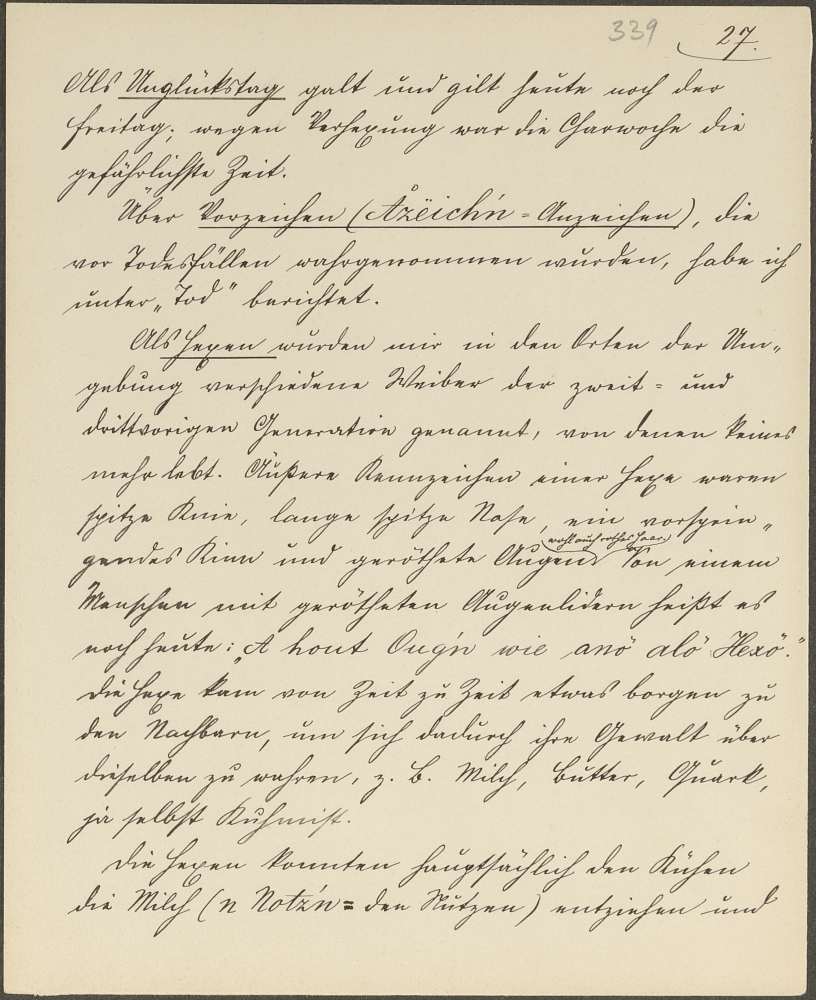 339 27.
Als Unglückstag galt und gilt heute noch der
Freitag; wegen Verhexung war die Charwoche die
gefährlichste Zeit.
Über Vorzeichen (Åzëich'n = Anzeichen), die
vor Todesfällen wahrgenommen wurden, habe ich
unter „Tod" berichtet.
Als Hexen wurden mir in den Orten der Um„
gebung verschiedene Weiber der zweit= und
drittvorigen Generation genannt, von denen keines
mehr lebt. Äußere Kennzeichen einer Hexe waren
spitze Knie, lange spitze Nase, ein vorsprin„
(wohl auch rothes Haar)
gendes Kinn und geröthete Augen. Von einem
Menschen mit gerötheten Augenlidern heißt es
noch heute: „A hout Oug'n wie anö alö Hexö."
Die Hexe kam von Zeit zu Zeit etwas borgen zu
den Nachbarn, um sich dadurch ihre Gewalt über
dieselben zu wahren, z. B. Milch, Butter, Quark,
ja selbst Kuhmist.
Die Hexen konnten hauptsächlich den Kühen
die Milch (n Notz'n = den Nutzen) entziehen und